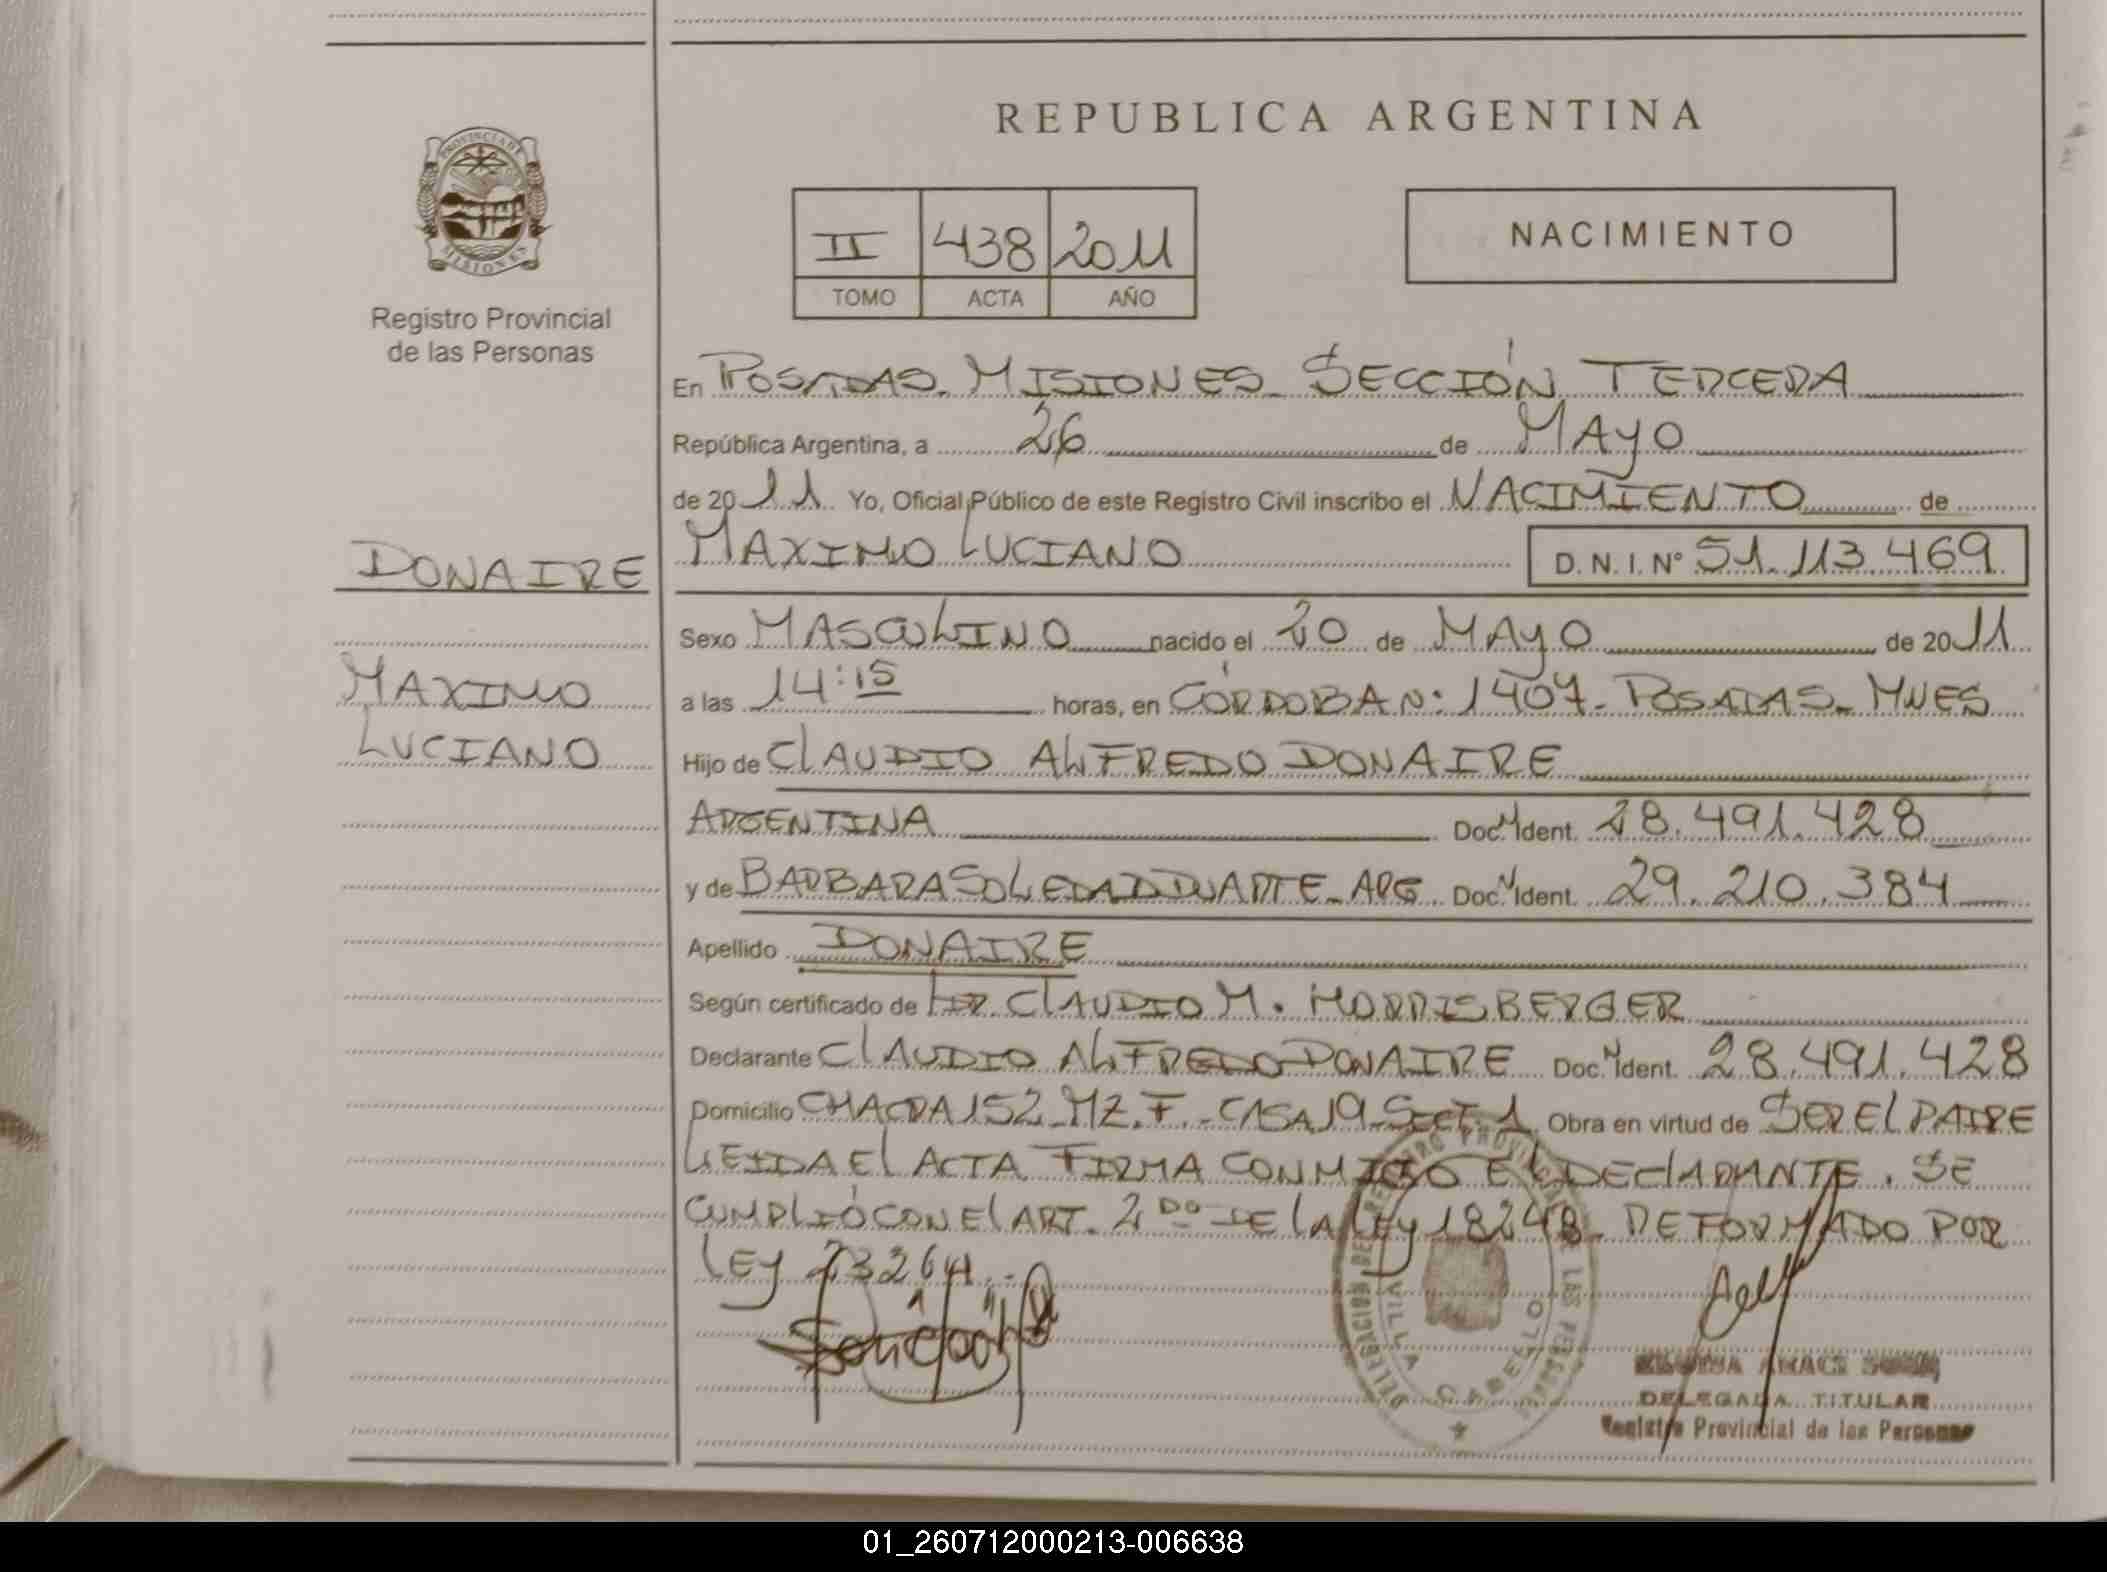 PROVINCIA DE
MISIONES
Registro Provincial
de las Personas
DONAIRE
MAXIMO
LUCIANO
REPUBLICA ARGENTINA
II 438 2011
TOMO ACTA AÑO
NACIMIENTO
En POSADAS. MISIONES. SECCIÓN TERCERA
República Argentina, a 26 de MAYO
de 2011 Yo, Oficial Público de este Registro Civil inscribo el NACIMIENTO de
MAXIMO LUCIANO D. N. I. Nº 51.113.469
Sexo MASCULINO nacido el 20 de MAYO de 2011
a las 14:15 horas, en CÓRDOBA N: 1407- POSADAS- MNES
Hijo de CLAUDIO ALFREDO DONAIRE
ARGENTINA Doc. Ident. 28.491.428
y de BARBARA SOLEDAD DUARTE- ARG Doc. Ident. 29.210.384
Apellido DONAIRE
Según certificado de DR. CLAUDIO M. MORRISBERGER
Declarante CLAUDIO ALFREDO DONAIRE Doc. Ident. 28.491.428
Domicilio CHACRA 152-MZ.F.-CASA 19-SECT.1 Obra en virtud de SER EL PADRE
LEIDA EL ACTA FIRMA CONMIGO EL DECLARANTE. SE
CUMPLIÓ CON EL ART. 2DO DE LA LEY 18248- REFORMADO POR
LEY 23264.-
DELEGACION DEL REGISTRO PROVINCIAL DE LAS PERSONAS
VILLA CABELLO
DELEGADA TITULAR
Registro Provincial de las Personas
01_260712000213-006638